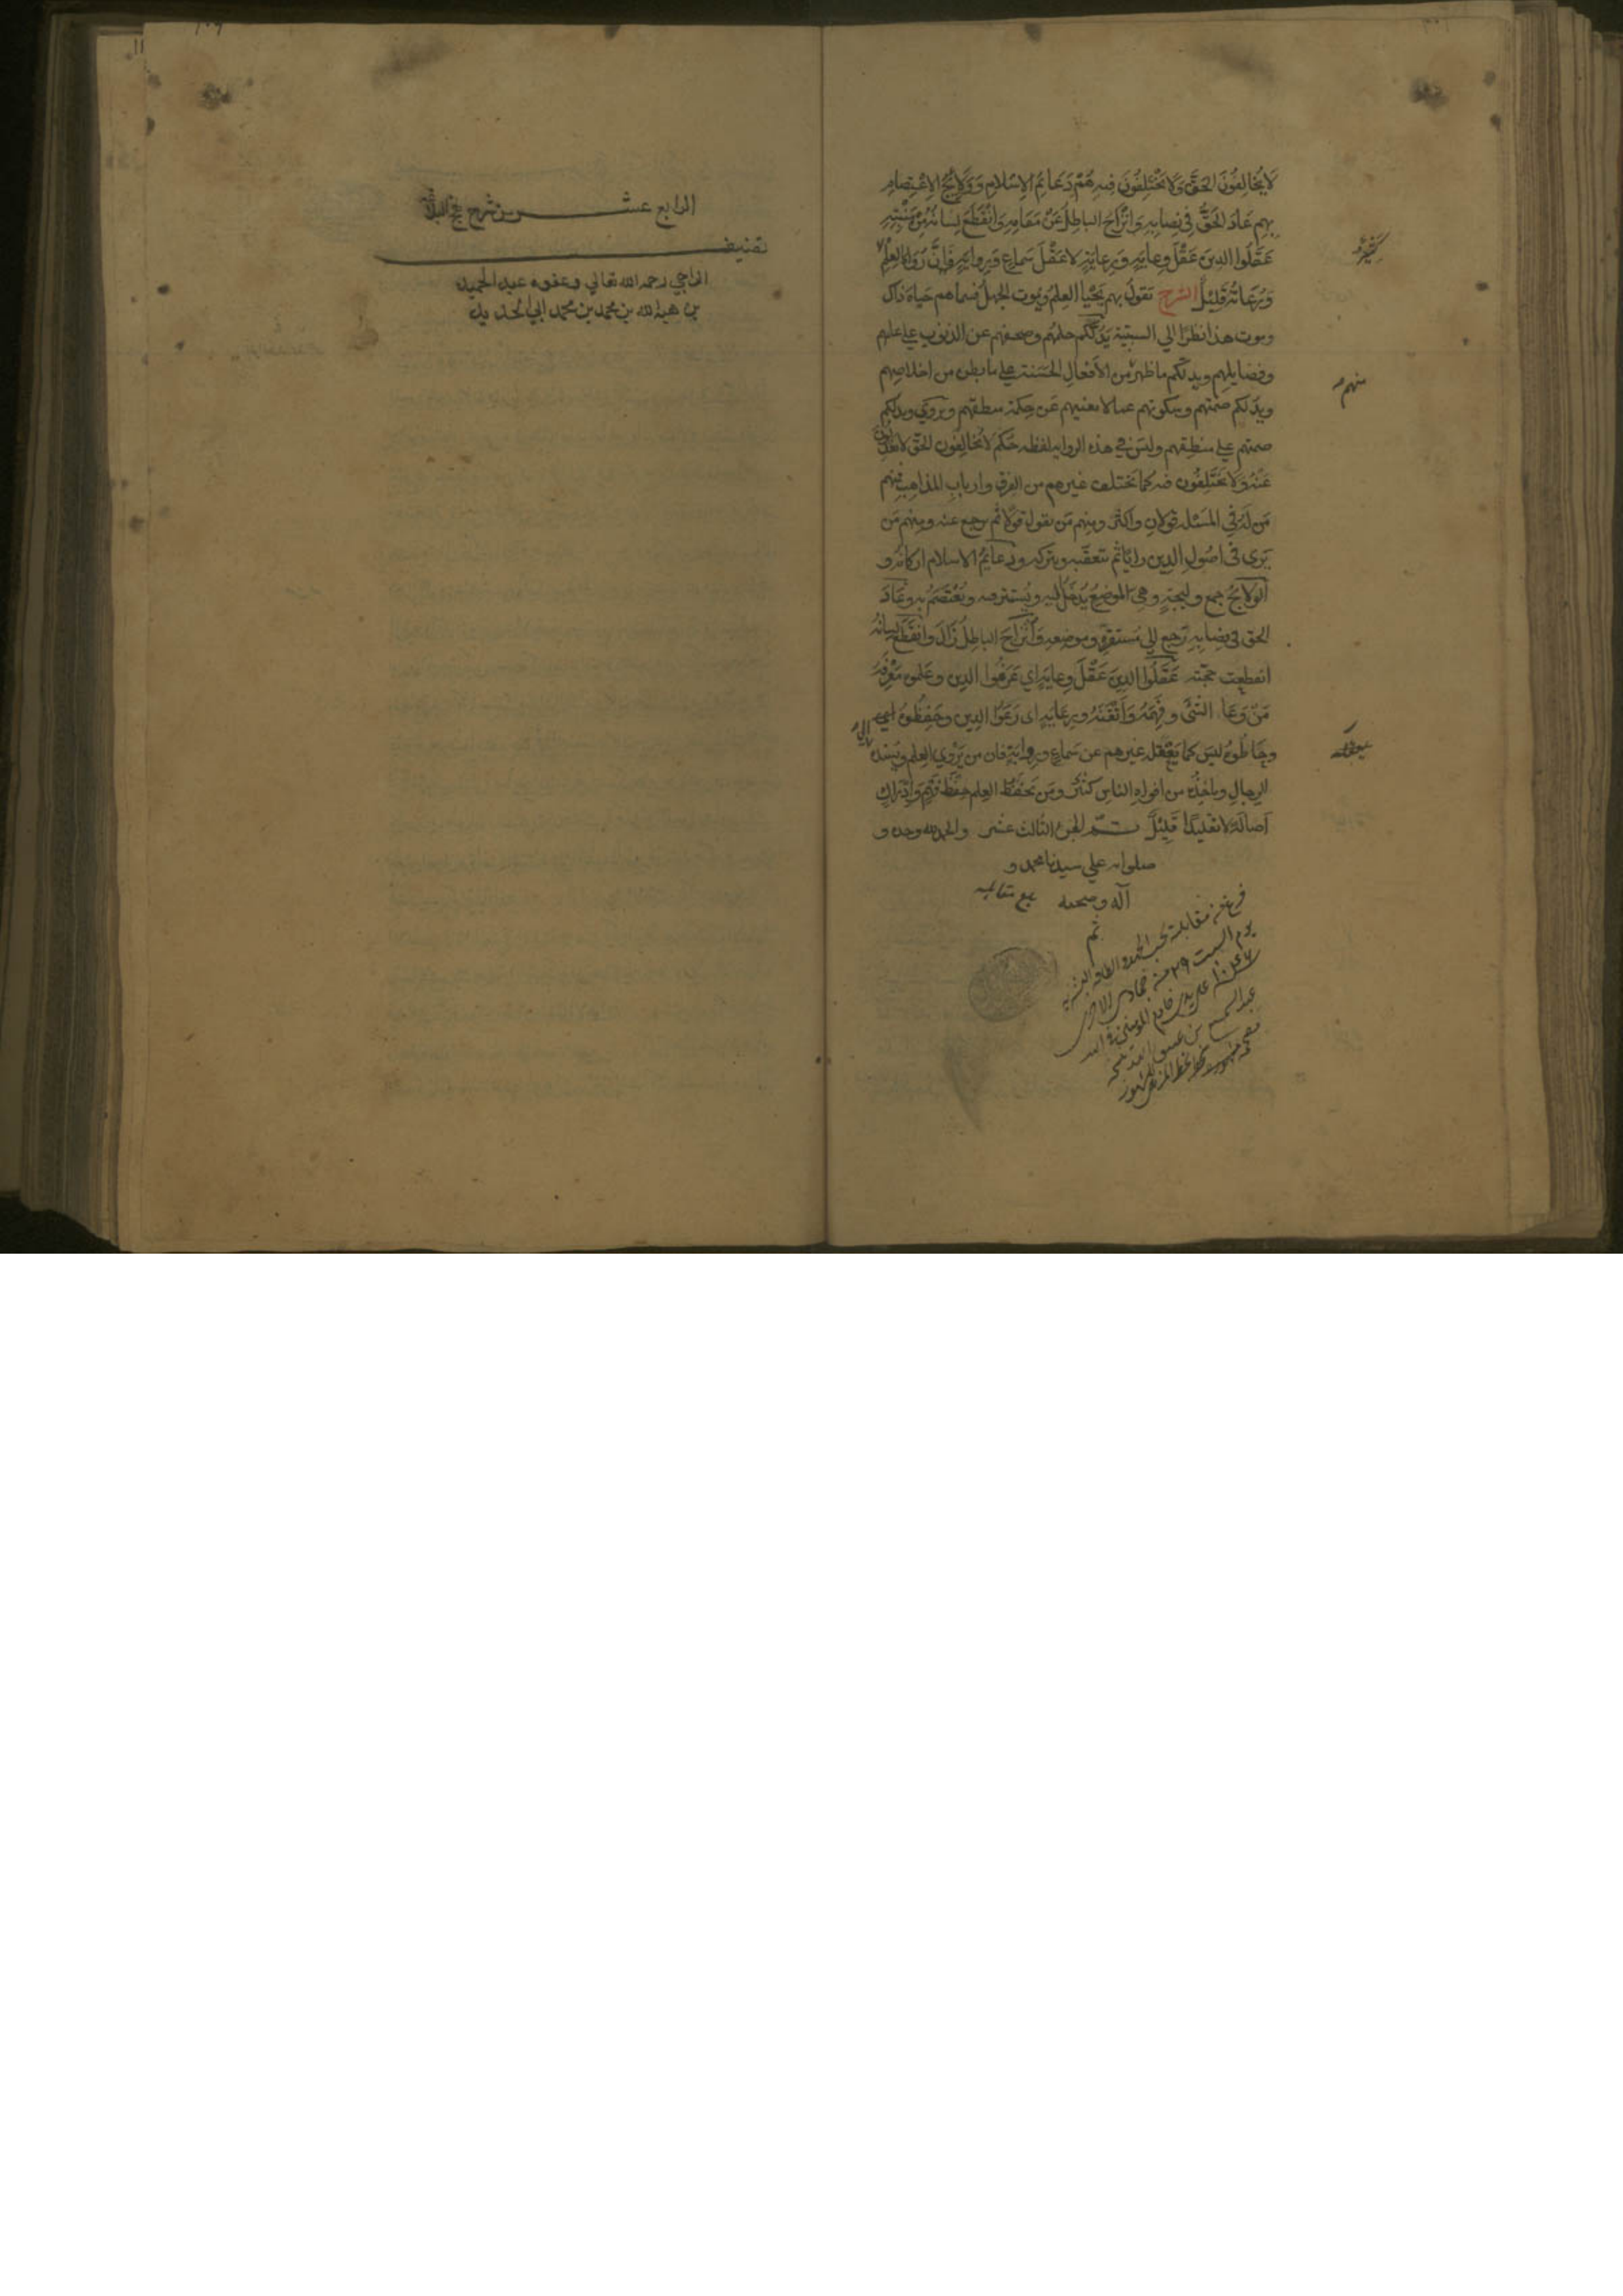 لَا يُخَالِفُونَ الْحَقَّ وَلَا يَخْتَلِفُونَ فيه هُمْ دَعَائِمُ الْإِسْلَامِ وَوَلَائِجُ الِاعْتِصَامِ
بِهِمْ عَادَ الْحَقُّ فِي نِصَابِهِ وَانْزَاحَ الباطِلُ عَنْ مَقَامِهِ وَانْقَطَعَ لِسَانُهُ مِنْ مَنْبِتِهِ
عَقَلُوا الدِينَ عَقْلَ وِعايَةٍ وَرِعايَةٍ لا عَقْلَ سَماعٍ وَرِوايَةٍ فَإِنَّ رُوَاةَ العِلْمِ
كَثِيرٌ
وَرُعَاتُهُ قَلِيْلٌ الشرح يقولُ بهم يَحْيَا العِلمُ ويموت الجهلُ فسماهم حَياةَ ذاك
وموت هذا نظرًا الي السببيّة يَدُلّكم حلمُهم وصفحهم عن الذنوب علي علمهم
وفضايلهم ويدلّكم ما ظهر من الأفعالِ الحَسَنة علي ما بطن من اخلاصِهم
منهم
ويدّلكم صَمتُهم وسكوتهم عما لا يعنيهم عَن حِكمة منطقهم ويُروَي ويدلكم
صمتهم علي منطِقهم وليسَ في هذه الروايه لفظه حكم لا يُخالِفُون الحقّ لا يعدلون
عَنْهُ وَلا يَختَلِفُون فيه كما يختلف غيرهم من الفِرقِ واربابِ المذاهِب فمنهم
مَن لَهُ في المسَئله قولانِ واكثر ومنهم مَن يقول قولا ثم يرجع عنه ومنهم مَن
يَرى في اصُولِ الدِين رايًا ثم يتعقّبه ويتركه ودعايمُ الاسلام اركانُه و
الوَلائجُ جمع وليجةٍ وهي الموضعُ يُدخَلُ اليهِ ويُستتر فيه ويُعْتَصَمُ به وعَادَ
الحق في نِصَابِهِ رَجع الي مُستقرّهِ وموضعِه وَانْزَاحَ الباطِلُ زَالَ وانقَطَعَ لسانُهُ
انقطعت حجّته عَقَلُوا الدِينَ عَقْلَ وِعايَةٍ اي عَرَفُوا الدِين وعلموه مَعْرِفَةَ
مَنْ وَعَا الشئَ وفَهِمَهُ وَاَتْقَنَهُ ورِعايَةٍ اى رَعَوا الدِين وحَفِظُوهُ
وحَاطُوهُ ليسَ كما يَعْقله غيرهم عن سَماعٍ وروايَةٍ فان من يَرْوِي العِلم ويُسنده
الي
الرجالِ وياخُذُه من افواهِ الناس كثيرٌ ومَن يَحفَظ العِلم حِفْظ فَهْمٍ وَاِدْرَاكٍ
اَصَالَةً لا تقليدًا قَلِيْلٌ تــم الجزء الثالث عشر والحمد لله وحده و
صلواته علي سيدنا محمد و
آله وصحبه
تم
يوم السبت ٢٩ من جمادى
الرابع عشــــر من شرح نهج البلاغة
تصنيف
الراجي رحمة الله تعالي وعفوه عبد الحميد
بن هبة الله بن محمد بن محمد ابي الحديد